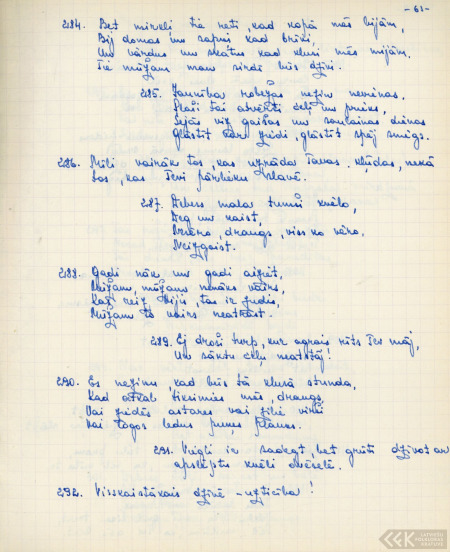 - 61 -
284. Bet mirkļi tie reti, kad kopā mēs bijām,
Bij domas un sapņi kad brīvi,
Un vārdus un skatus kad klusi mēs mijām.
Tie mūžam man sirdī būs dzīvi.
285. Jaunība robežas nezin nevienas.
Plaši tai atvērti ceļi un prieks,
Sejās viz gaišas un saulainas dienas
Glāstīt var ziedi, glāstīt spēj sniegs.
286. Mīli vairāk tos, kas uzrāda Tavas kļūdas, nekā
tos, kas Tevi pārlieku slavē.
287. Arbers mala tumši kvēlo,
Deg un kaist,
draugs, viss ko vēro,
Neizgaist.
288. Gadi nāk un gadi aiziet,
Mūžam, mūžam nenāks vairs,
Kas reiz bijis, tas ir zudis,
Mūžam to vairs neatrast.
289. Ej droši turp, kur agrais rīts Tev māj,
Un sāktu ceļu neatstāj!
290. Es nezinu, kad būs tā klusā stunda,
Kad atkal tiksimies mēs, draugs,
Vai ziedēs asteres vai zilie virši
Vai logos ledus puķes plauks.
291. Viegli ir sadegt, bet grūti dzīvot ar
apslēptu kvēli dvēselē.
292. Visskaistākais dzīvē - uzticība!
LATVIEŠU
FOLKLORAS
KRĀTUVE